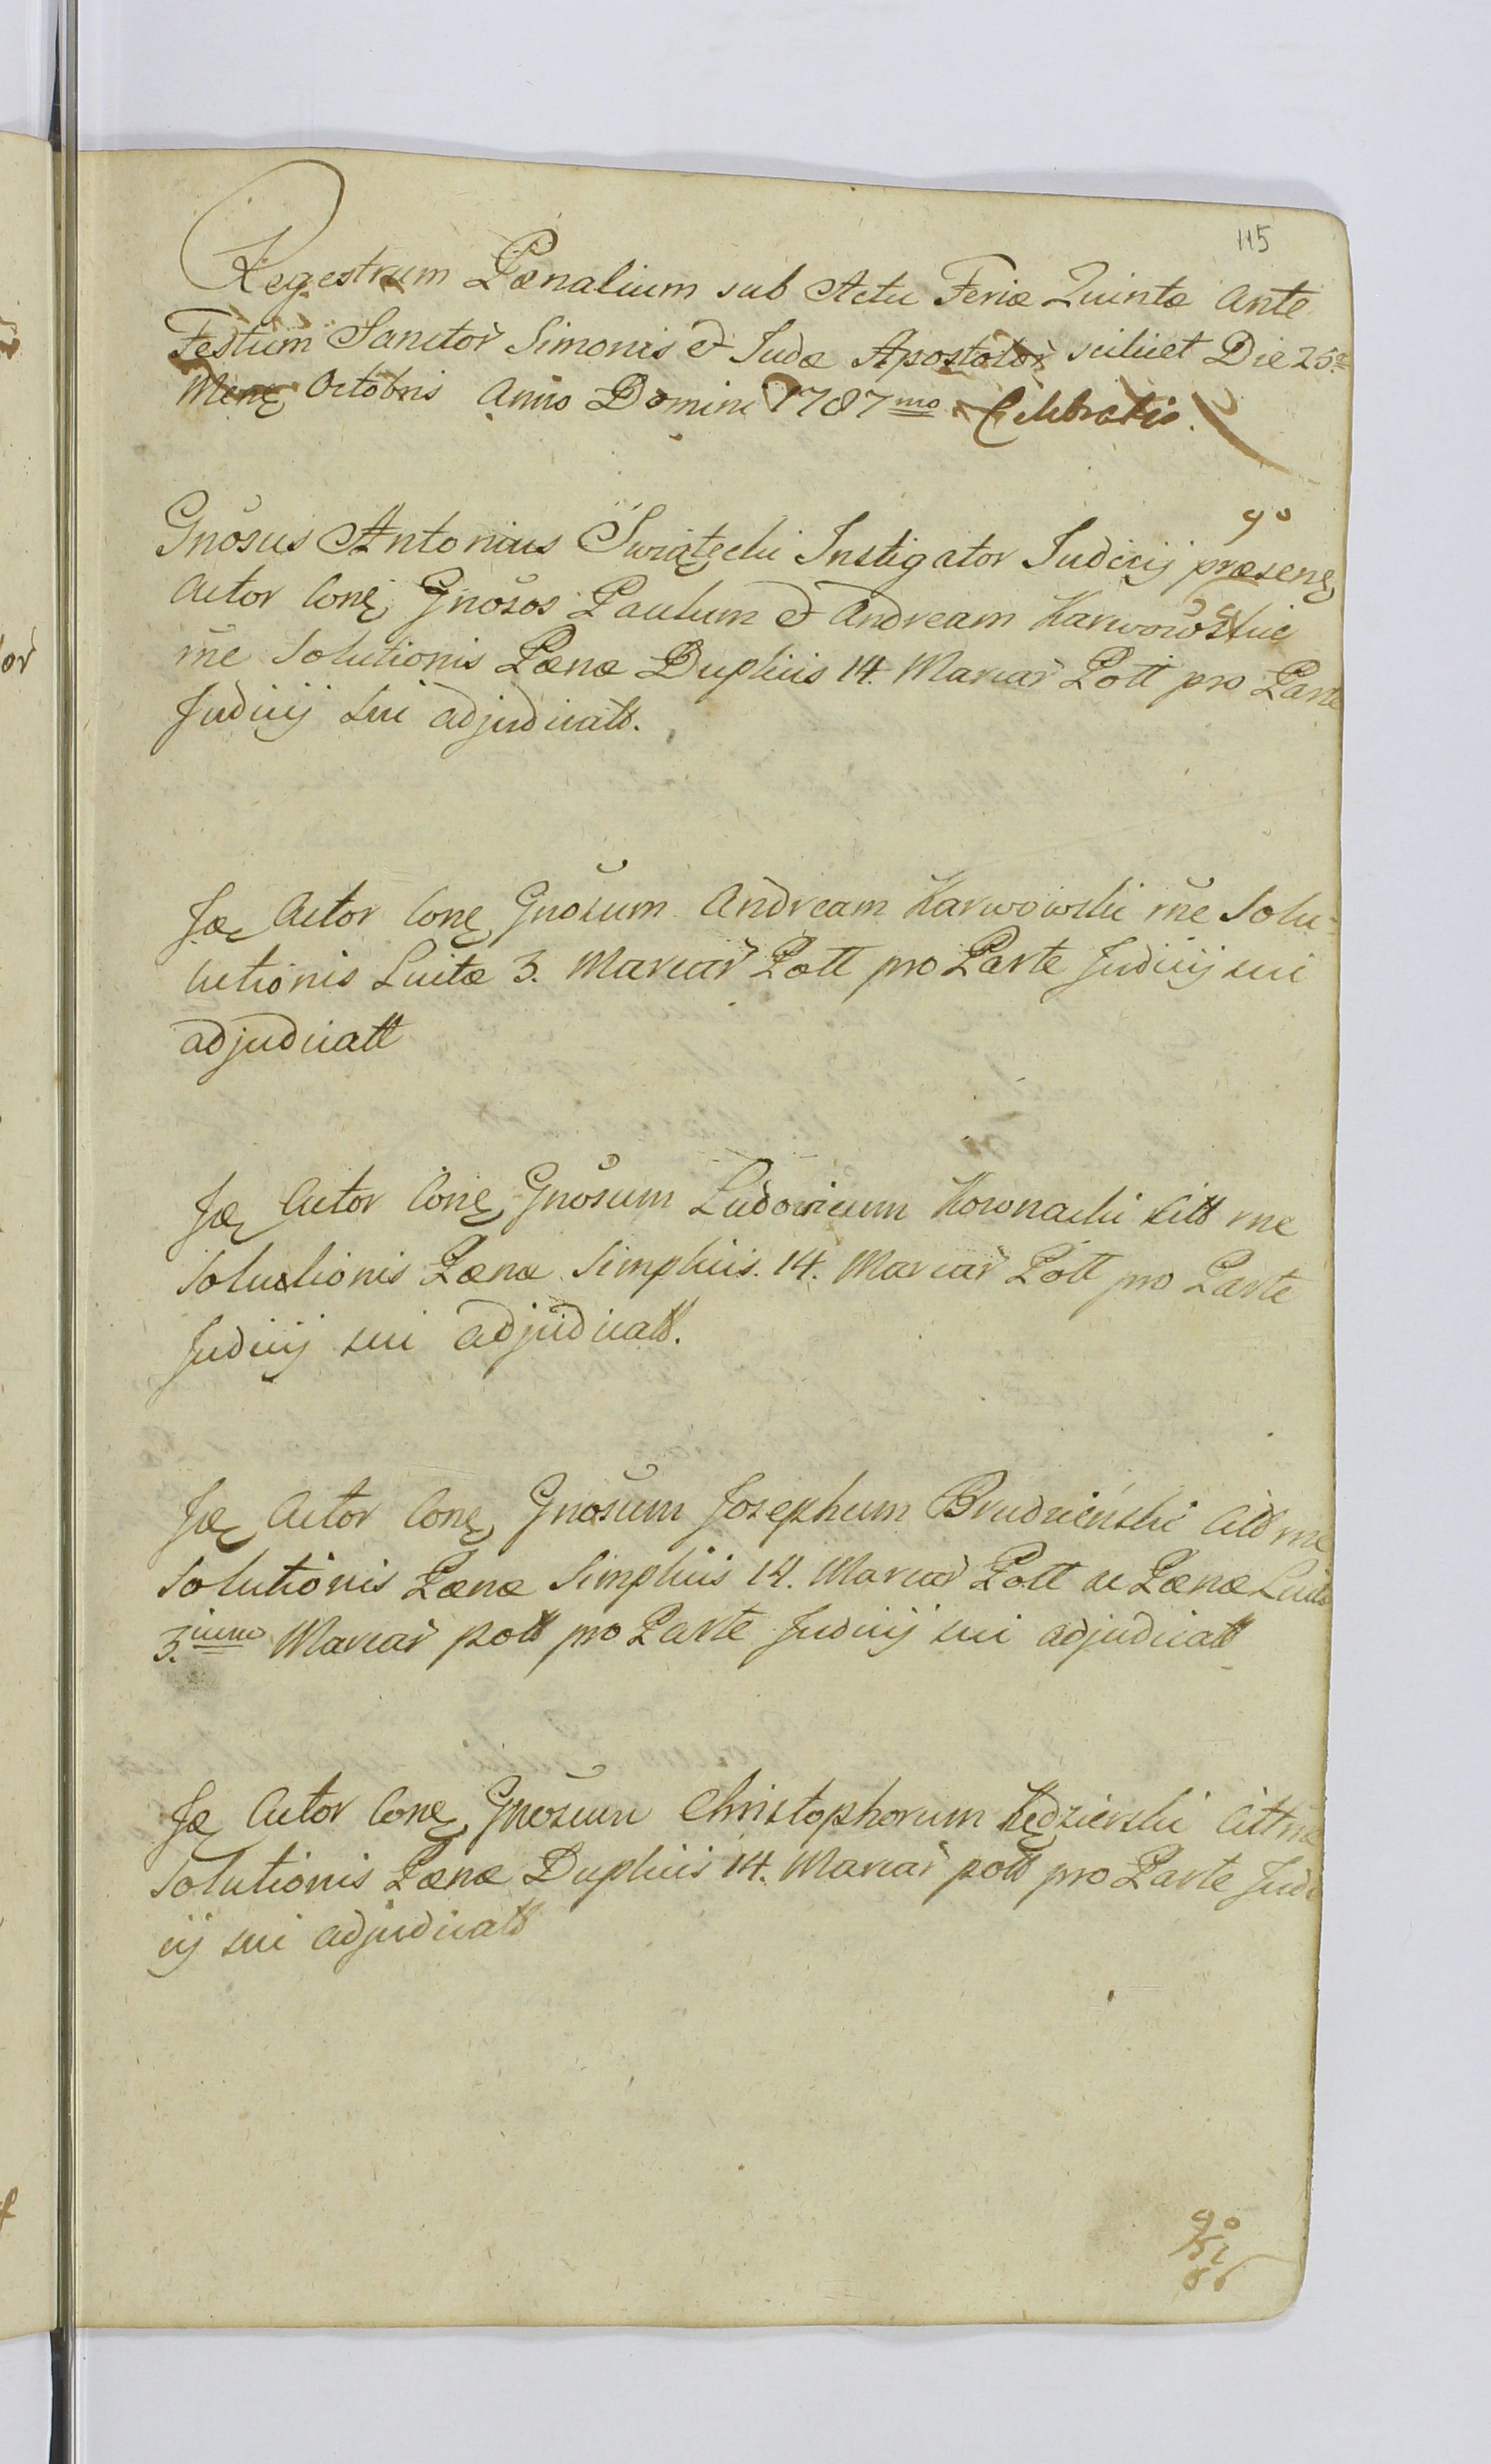 115
Regestrum Pænalium sub Actu Feriæ Quintæ ante
Festum Sanctor̃ Simonis et Judæ Apostolor̃ scilicet Die 25ª
Menę Octobris Anno Domini 1787mo Celebratis.
Gnõsus Antonius Swiątęcki Instigator Judicij præsenę
Actor Conę Gnõsos Paulum et Andream Karwowskie
rñe Solutionis Pænæ Duplicis 14. Marcar̃ Poll pro Parte
Judicij sui adjudicatt.
Jæ Actor Conę Gnõsum Andream Karwowski rñe Solu-
lutionis Luitæ 3. Marcar̃ Poll pro Parte Judicij sui
adjudicatt
Jæ Actor Conę Gnõsum Ludovicum Kownacki Citt rne
Solutionis Pænæ Simplicis. 14. Marcar̃ Poll pro Parte
Judicij sui adjudicatt.
Jæ Actor Conę Gnõsum Josephum Brudzieński Citt rne
Solutionis Pænæ Simplicis 14. Marcar̃ Poll ac Pænæ Luitæ
3.ium Marcar̃ poll pro Parte Judicij sui adjudicatt
Jæ Actor Conę Gnõsum Christophorum Kędzierski Citt rne
Solutionis Pænæ Duplicis 14. Marcar̃ poll pro Parte Judi
cij sui adjudicatt